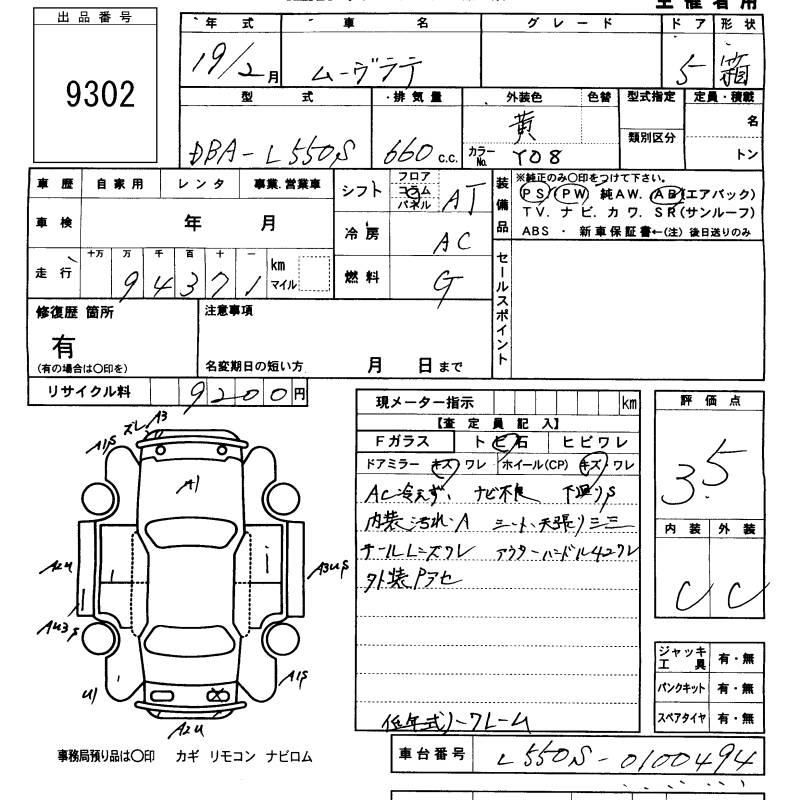 主催者用
出品番号
9302
年式 車名 グレード ドア 形状
19/2月 ムーヴラテ 5 箱
型式 排気量 外装色 色替 型式指定 定員・積載
DBA-L550S 660 c.c. 黄 類別区分 名
カラーNo. Y08 トン
車歴 自家用 レンタ 事業.営業車
車検 年 月
走行 十万 万 千 百 十 一 km マイル
94371
シフト フロア コラム パネル AT
冷房 AC
燃料 G
装備品 ※純正のみ○印をつけて下さい。
PS PW 純AW. AB(エアバック)
TV. ナビ. カワ. SR(サンルーフ)
ABS ・ 新車保証書←(注) 後日送りのみ
セールスポイント
修復歴 箇所
有
(有の場合は○印を)
注意事項
名変期日の短い方 月 日まで
リサイクル料 9200円
現メーター指示 km
【査定員記入】
Fガラス トビ石 ヒビワレ
ドアミラー キズ・ワレ ホイール(CP) キズ・ワレ
AC冷えず、 ナビ不良 下廻りS
内装汚れ・A シート、天張りシミ
テールレンズワレ アウターハンドル42ワレ
外装Pアセ
低年式ノークレーム
評価点
3.5
内装 外装
C C
ジャッキ工具 有・無
パンクキット 有・無
スペアタイヤ 有・無
ズレ A3
A1S
A1
A2U
A3US
AU3S
U1
A1S
A2U
事務局預り品は○印 カギ リモコン ナビロム
車台番号 L550S-0100494